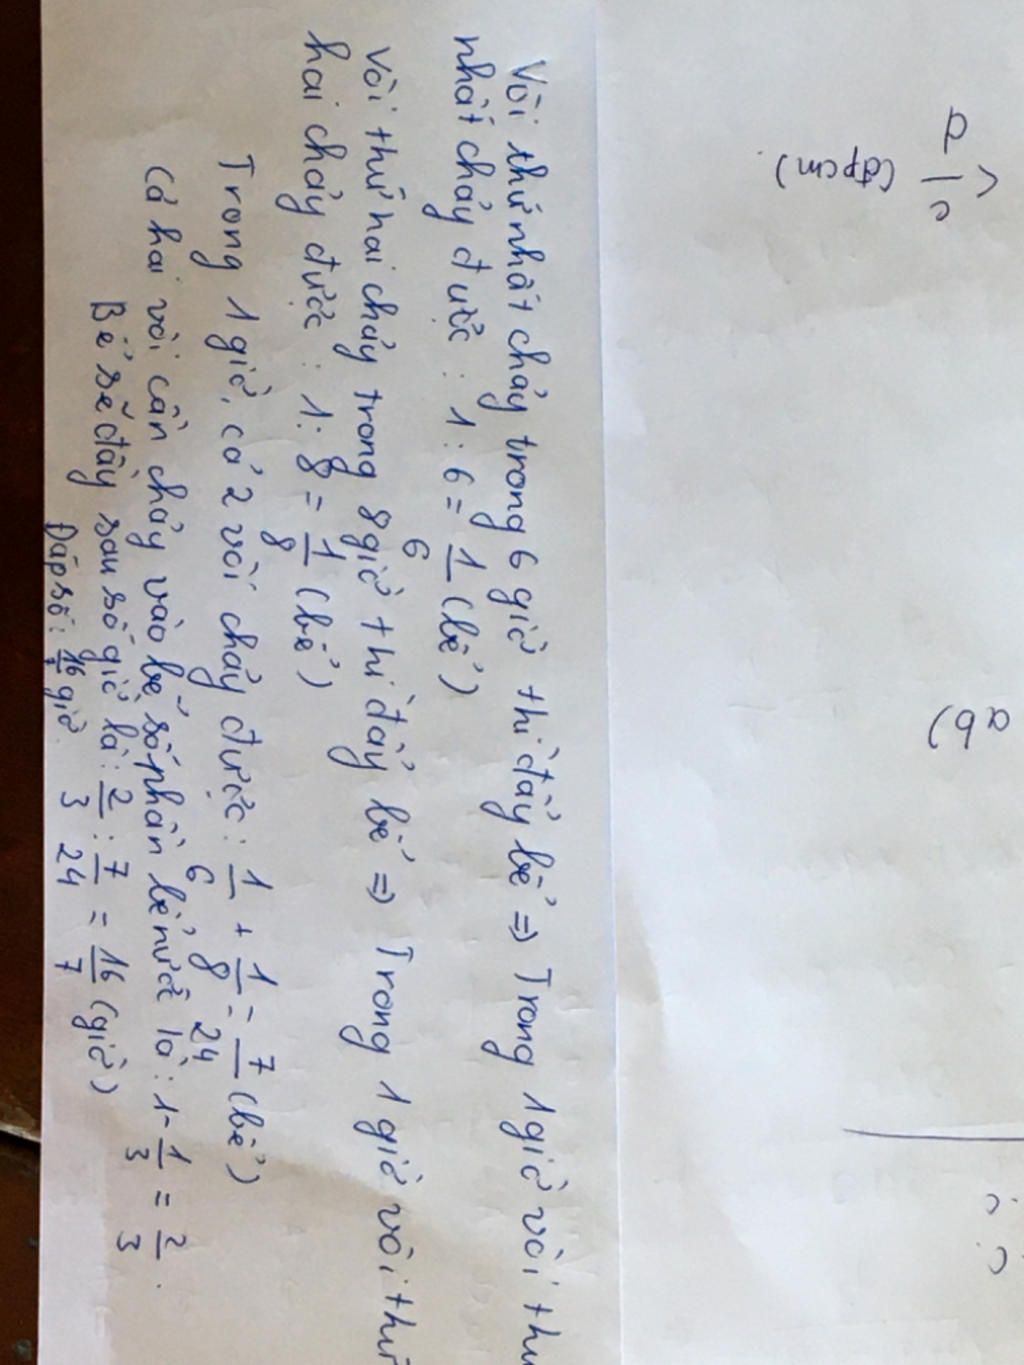 Vòi thứ nhất chảy trong 6 giờ thì đầy bể => Trong 1 giờ vòi thứ
nhất chảy được : 1 : 6 = 1/6 (bể)
Vòi thứ hai chảy trong 8 giờ thì đầy bể => Trong 1 giờ vòi thứ
hai chảy được : 1 : 8 = 1/8 (bể)
Trong 1 giờ, cả 2 vòi chảy được : 1/6 + 1/8 = 7/24 (bể)
Cả hai vòi cần chảy vào bể số phần bể nước là : 1 - 1/3 = 2/3.
Bể sẽ đầy sau số giờ là : 2/3 : 7/24 = 16/7 (giờ)
Đáp số : 16/7 giờ
< c/d (đpcm).
ab)